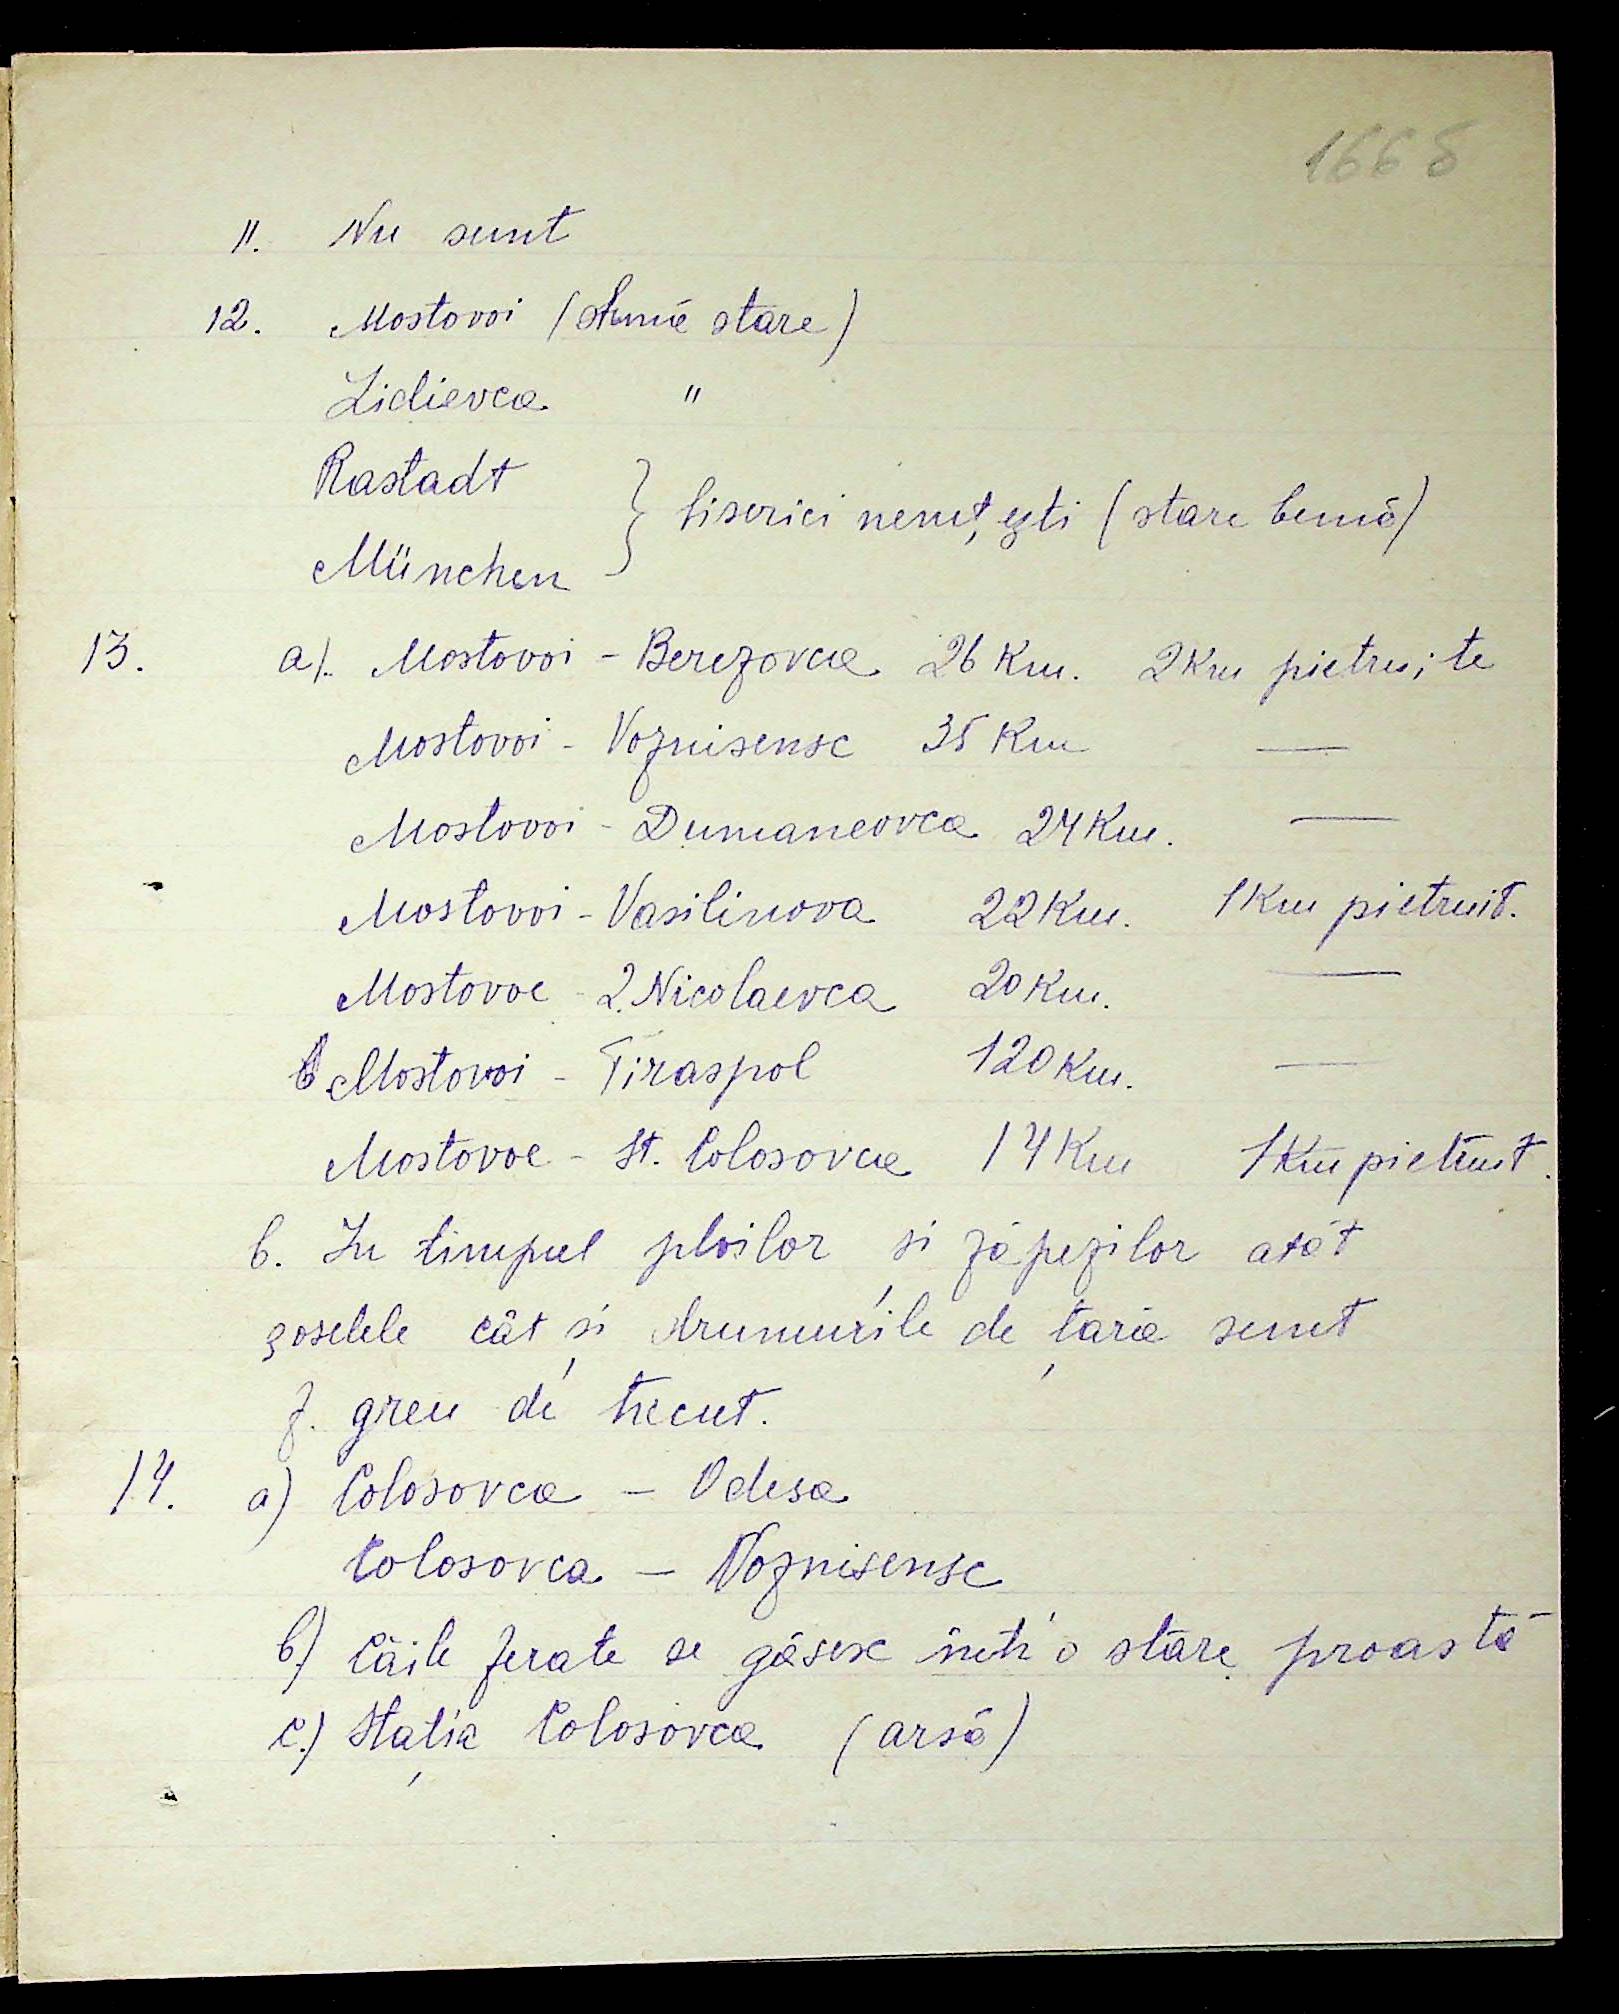 166б
11. Nu sunt
12. Mostovoi (bună stare)
Lidievca "
Rastadt
München } biserici nemțești (stare bună)
13. a). Mostovoi - Berezovca 26 Km. 2 Km pietruite
Mostovoi - Voznisensc 35 Km —
Mostovoi - Dumaneovca 24 Km. —
Mostovoi - Vasilinova 22 Km. 1 Km pietruit.
Mostovoe - 2. Nicolaevca 20 Km. —
Mostovoi - Tiraspol 120 Km. —
Mostovoe - St. Colosovca 14 Km 1 Km pietruit.
b. In timpul ploilor și zăpezilor atât
șoselele cât și drumurile de țară sunt
f. greu de trecut.
14. a) Colosovca — Odesa
Colosovca — Voznisensc
b) Căile ferate se găsesc într'o stare proastă
c.) Stația Colosovca (arsă)